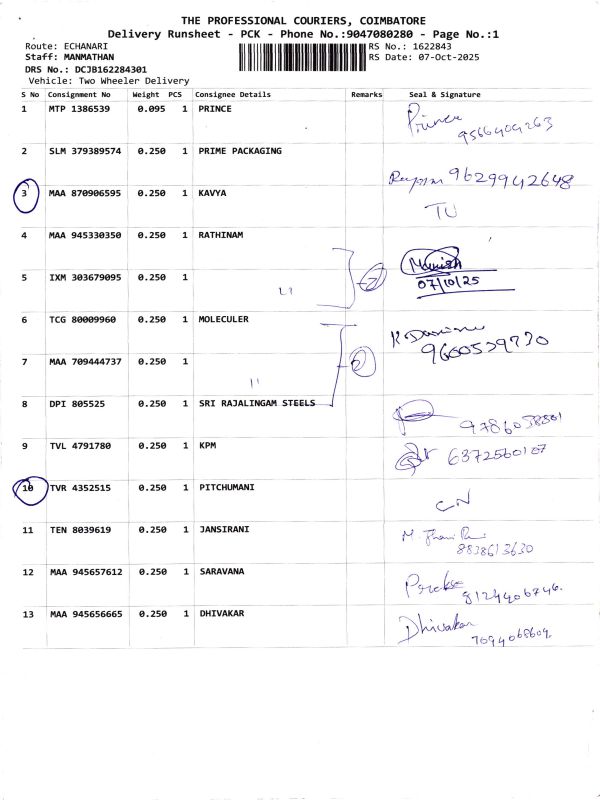 THE PROFESSIONAL COURIERS, COIMBATORE
Delivery Runsheet - PCK - Phone No.:9047080280 - Page No.:1
Route: ECHANARI RS No.: 1622843
Staff: MANMATHAN RS Date: 07-Oct-2025
DRS No.: DCJB162284301
Vehicle: Two Wheeler Delivery
S No Consignment No Weight PCS Consignee Details Remarks Seal & Signature
1 MTP 1386539 0.095 1 PRINCE Prince
9566404263
2 SLM 379389574 0.250 1 PRIME PACKAGING
9629942648
3 MAA 870906595 0.250 1 KAVYA
TU
4 MAA 945330350 0.250 1 RATHINAM
Manish
5 IXM 303679095 0.250 1 07/10/25
"
6 TCG 80009960 0.250 1 MOLECULER
9600539730
7 MAA 709444737 0.250 1
"
8 DPI 805525 0.250 1 SRI RAJALINGAM STEELS
9 TVL 4791780 0.250 1 KPM 6372560187
10 TVR 4352515 0.250 1 PITCHUMANI
CN
11 TEN 8039619 0.250 1 JANSIRANI
8838613630
12 MAA 945657612 0.250 1 SARAVANA
8124406746.
13 MAA 945656665 0.250 1 DHIVAKAR Dhivakar
7094068609